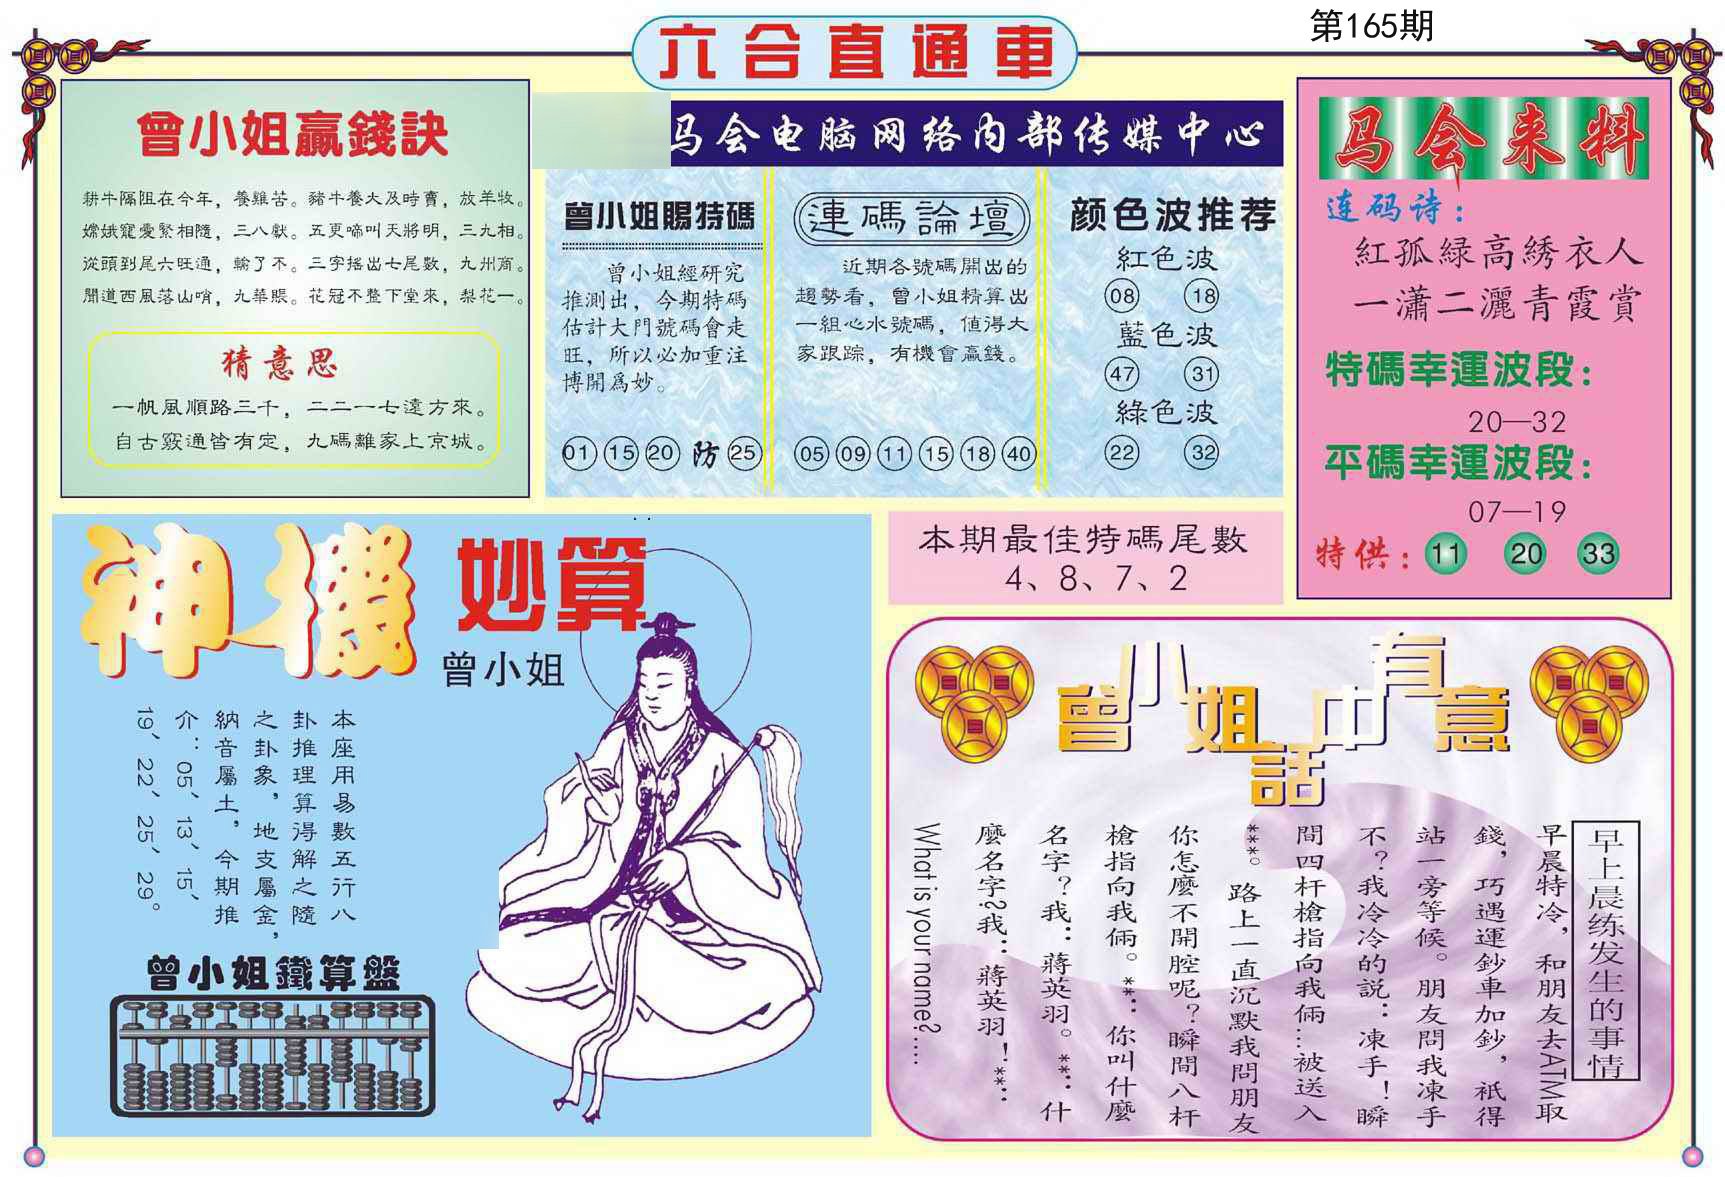 第165期
六合直通車
曾小姐贏錢訣
耕牛隔阻在今年，養雞苦。豬牛養大及時賣，放羊牧。
嫦娥寵愛緊相隨，三八獻。五更啼叫天將明，三九相。
從頭到尾六旺通，輸了不。三字搖出七尾數，九州商。
開道西風落山哨，九華賬。花冠不整下堂來，梨花一。
猜意思
一帆風順路三千，二二一七遠方來。
自古竅通皆有定，九碼離家上京城。
马会电脑网络内部传媒中心
曾小姐賜特碼
曾小姐經研究
推測出，今期特碼
估計大門號碼會走
旺，所以必加重注
博開爲妙。
01 15 20 防 25
連碼論壇
近期各號碼開出的
趨勢看，曾小姐精算出
一組心水號碼，值得大
家跟踪，有機會贏錢。
05 09 11 15 18 40
颜色波推荐
紅色波
08 18
藍色波
47 31
綠色波
22 32
马会来料
连码诗：
紅孤緑高綉衣人
一瀟二灑青霞賞
特碼幸運波段：
20—32
平碼幸運波段：
07—19
特供：11 20 33
本期最佳特碼尾數
4、8、7、2
神機妙算
曾小姐
本座用易數五行八
卦推理算得解之隨
之卦象，地支屬金，
納音屬土，今期推
介：05、13、15、
19、22、25、29。
曾小姐鐵算盤
曾小姐話中有意
早上晨练发生的事情
早晨特冷，和朋友去ATM取
錢，巧遇運鈔車加鈔，祇得
站一旁等候。朋友問我凍手
不？我冷冷的説：凍手！瞬
間四杆槍指向我倆…被送入
***。路上一直沉默我問朋友
你怎麼不開腔呢？瞬間八杆
槍指向我倆。**：你叫什麼
名字？我：蔣英羽。**：什
麼名字？我：蔣英羽！**：
What is your name?……